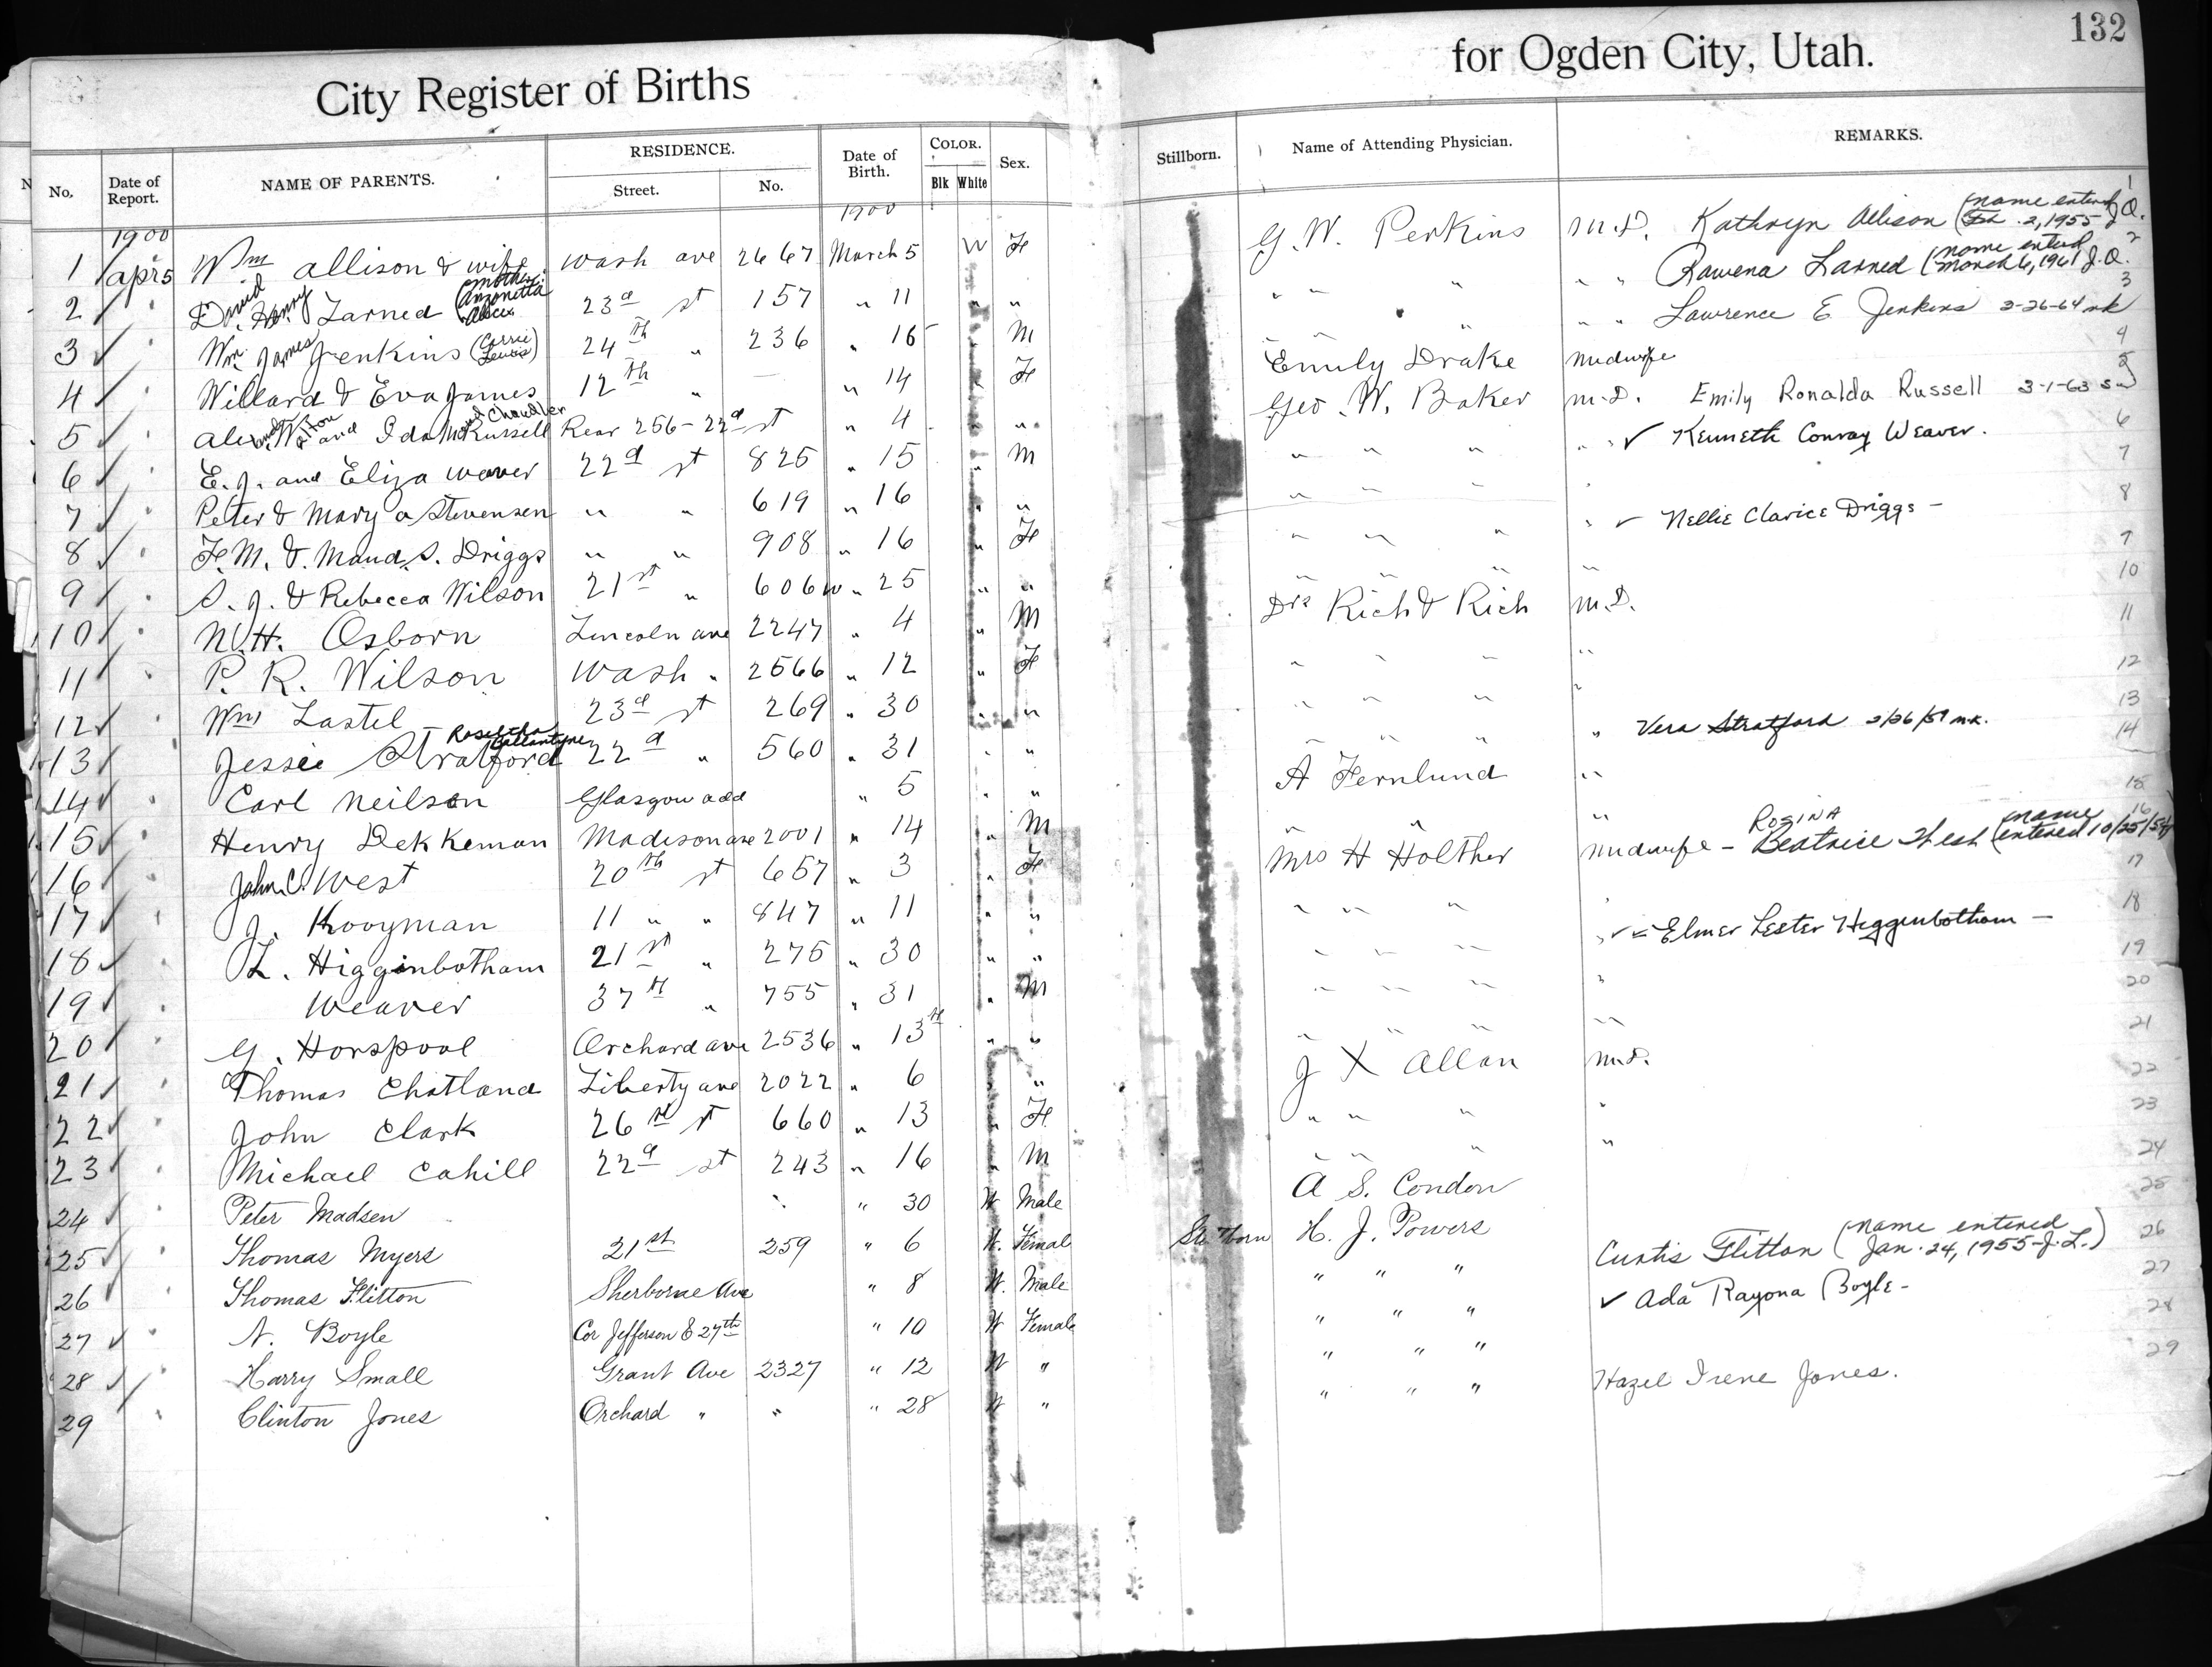 132
City Register of Births for Ogden City, Utah.
No. Date of Report. NAME OF PARENTS. RESIDENCE. Street. No. Date of Birth. COLOR. Blk White Sex. Stillborn. Name of Attending Physician. REMARKS.
1900 1900
1 Apr 5 Wm Allison & wife Wash ave 2467 March 5 W F G. W. Perkins M.D. Kathryn Allison (name entered 2, 1955 J.Q. 1
2 " David Henry Larned (mother Anzonetta Alice) 23d st 157 " 11 " " " " " " Rawena Larned (name entered March 6, 1961 J.Q. 2
3 " Wm James Jenkins (Carrie Lewis) 24th " 236 " 15 " M " " " " Lawrence E Jenkins 2-26-64 mk 3
4 " Willard & Eva James 12th " — " 14 " F Emily Drake Midwife 4
5 " Alex W. Alton and Ida M Russell Chandler Rear 256 - 22d st " 4 " " Geo. W. Baker M.D. Emily Ronalda Russell 3-1-63 5
6 " E. J. and Eliza Weaver 22d st 825 " 15 " M " " " " ✓ Kenneth Conray Weaver. 6
7 " Peter & Mary A Stevensen " " 619 " 16 " " " " " " 7
8 " F. M. & Maud S. Driggs " " 908 " 16 " F " " " " ✓ Nellie Clarice Driggs - 8
9 " S. J. & Rebecca Wilson 21st " 606 W " 25 " " " " " " 9
10 " N. H. Osborn Lincoln ave 2247 " 4 " M Drs Rich & Rich M.D. 10
11 " P. R. Wilson Wash " 2566 " 12 " F " " " " 11
12 " Wm Lastel 23d st 269 " 30 " " " " " " 12
13 " Jessie Stratford - Rosettha Ballantyne 22d " 560 " 31 " " " " " " Vera Stratford 2/26/59 m.k. 13
14 " Carl Neilson Glasgow add " 5 " " A Fernlund " 14
15 " Henry Dekkeman Madison ave 2001 " 14 " M " " " 15
16 " John C. West 20th st 657 " 3 " F Mrs H Holther Midwife - ROSINA Beatrice West (name entered 10/25/54) 16
17 " J. Kooyman 11 " " 847 " 11 " " " " " " 17
18 " L. Higginbotham 21st " 275 " 30 " " " " " " ✓ Elmer Lester Higgenbotham - 18
19 " Weaver 37th " 755 " 31 " M " " " " 19
20 " G. Horspool Orchard ave 2536 " 13th " " " " " " 20
21 " Thomas Chatland Liberty ave 2022 " 6 " J X Allan M.D. 21
22 " John Clark 26th st 660 " 13 " F " " " " 22
23 " Michael Cahill 22d st 243 " 16 " M " " " " 23
24 " Peter Madsen " 30 W Male A S. Condon 24
25 " Thomas Myers 21st 259 " 6 W. Femal Stillborn H. J. Powers 25
26 " Thomas Flitton Sherborne Ave " 8 W. Male " " " Curtis Flitton (name entered Jan. 24, 1955-J.L.) 26
27 " N. Boyle Cor Jefferson & 27th " 10 W Female " " " ✓ Ada Rayona Boyle - 27
28 " Harry Small Grant Ave 2327 " 12 W " " " " 28
29 " Clinton Jones Orchard " " " 28 W " " " " Hazel Irene Jones. 29